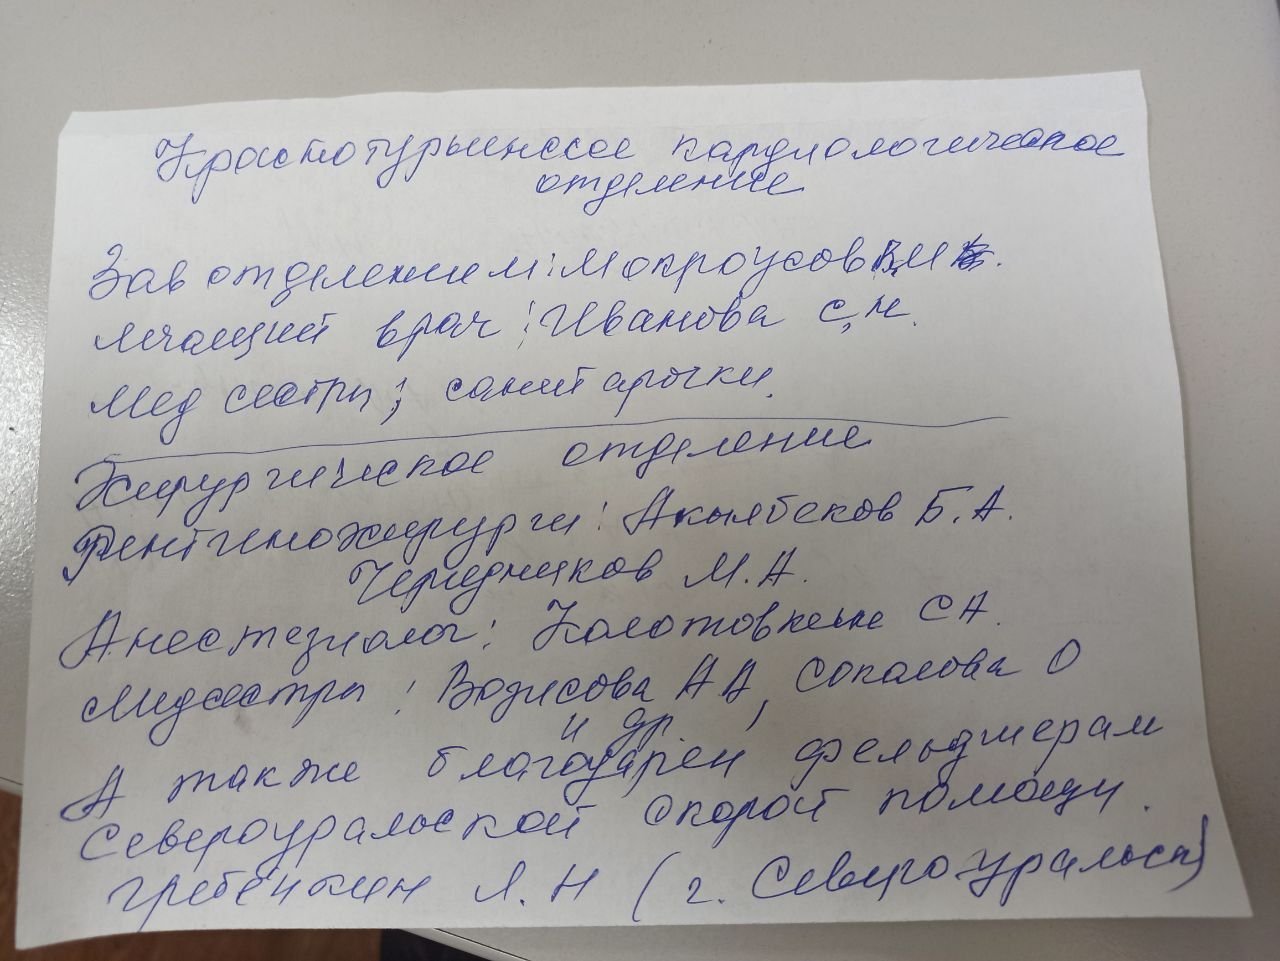 Краснотурьинское кардиологическое
отделение
Зав отделением: Мокроусов В.И.
Лечащий врач: Иванова С.Н.
Мед сестры, санитарочки.
Хирургическое отделение
Рентгенохирурги: Акылбеков Б.А.
Чередников М.А.
Анестезиолог: С А.
Медсестры: А А, Соколова О
и др,
А также благодарен фельдшерам
Североуральской скорой помощи.
Гребенкин Л.Н (г. Североуральск)